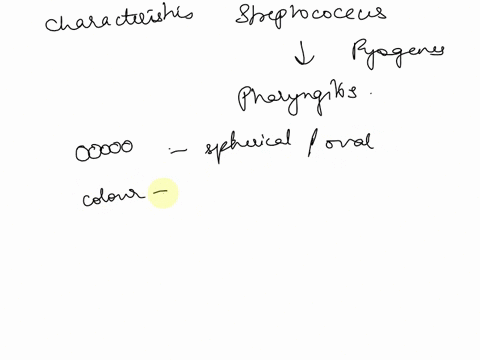 characteristics Streptococcus
↓ Pyogenes
Pharyngitis.
:- spherical / oval
colour -